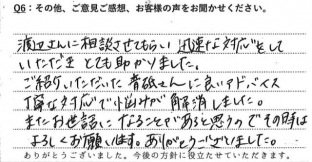 Q6：その他、ご意見ご感想、お客様の声をお聞かせください。
渡辺さんに相談させてもらい 迅速な対応をして
いただき とても助かりました。
ご紹介いただいた 青紙さんに良いアドバイス
丁寧な対応で悩みが解消しました。
またお世話になることがあると思うのでその時は
よろしくお願います。ありがとうございました。
ありがとうございました。今後の方針に役立たせていただきます。